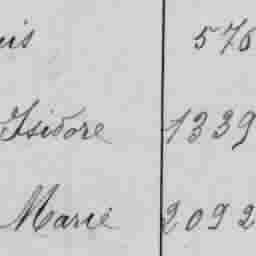 576
Isidore 1339
Marie 2092